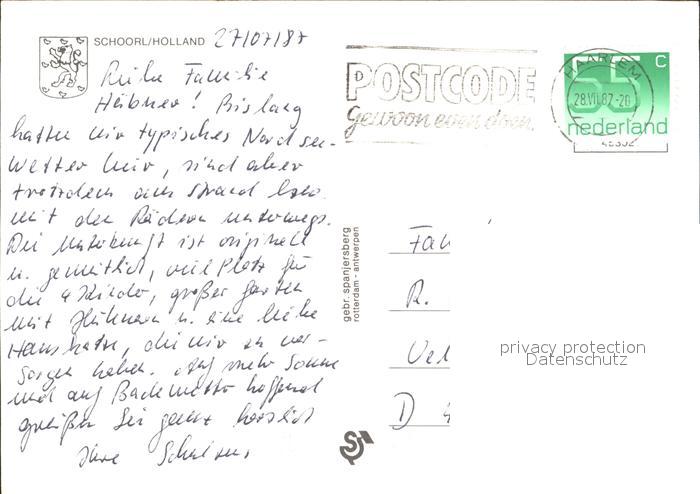 SCHOORL/HOLLAND 27/07/87
Familie
Hübner! Bislang
hatten wir typisches Nordsee-
wetter hier, sind aber
trotzdem am Strand bzw.
mit den Rädern unterwegs.
Die Unterkunft ist originell
u. gemütlich, viel Platz für
die 4 Kinder, großer Garten
mit Hühnern u. eine liebe
Hauskatze, die wir zu ver-
sorgen haben. Auf mehr Sonne
und auf Badewetter hoffend
grüßen Sie ganz herzlich
Ihre
POSTCODE
gewoon even doen.
HAARLEM
28.VII.87-20
55 C
nederland
gebr. spanjersberg
rotterdam - antwerpen
Fam
R.
D 4
privacy protection
Datenschutz